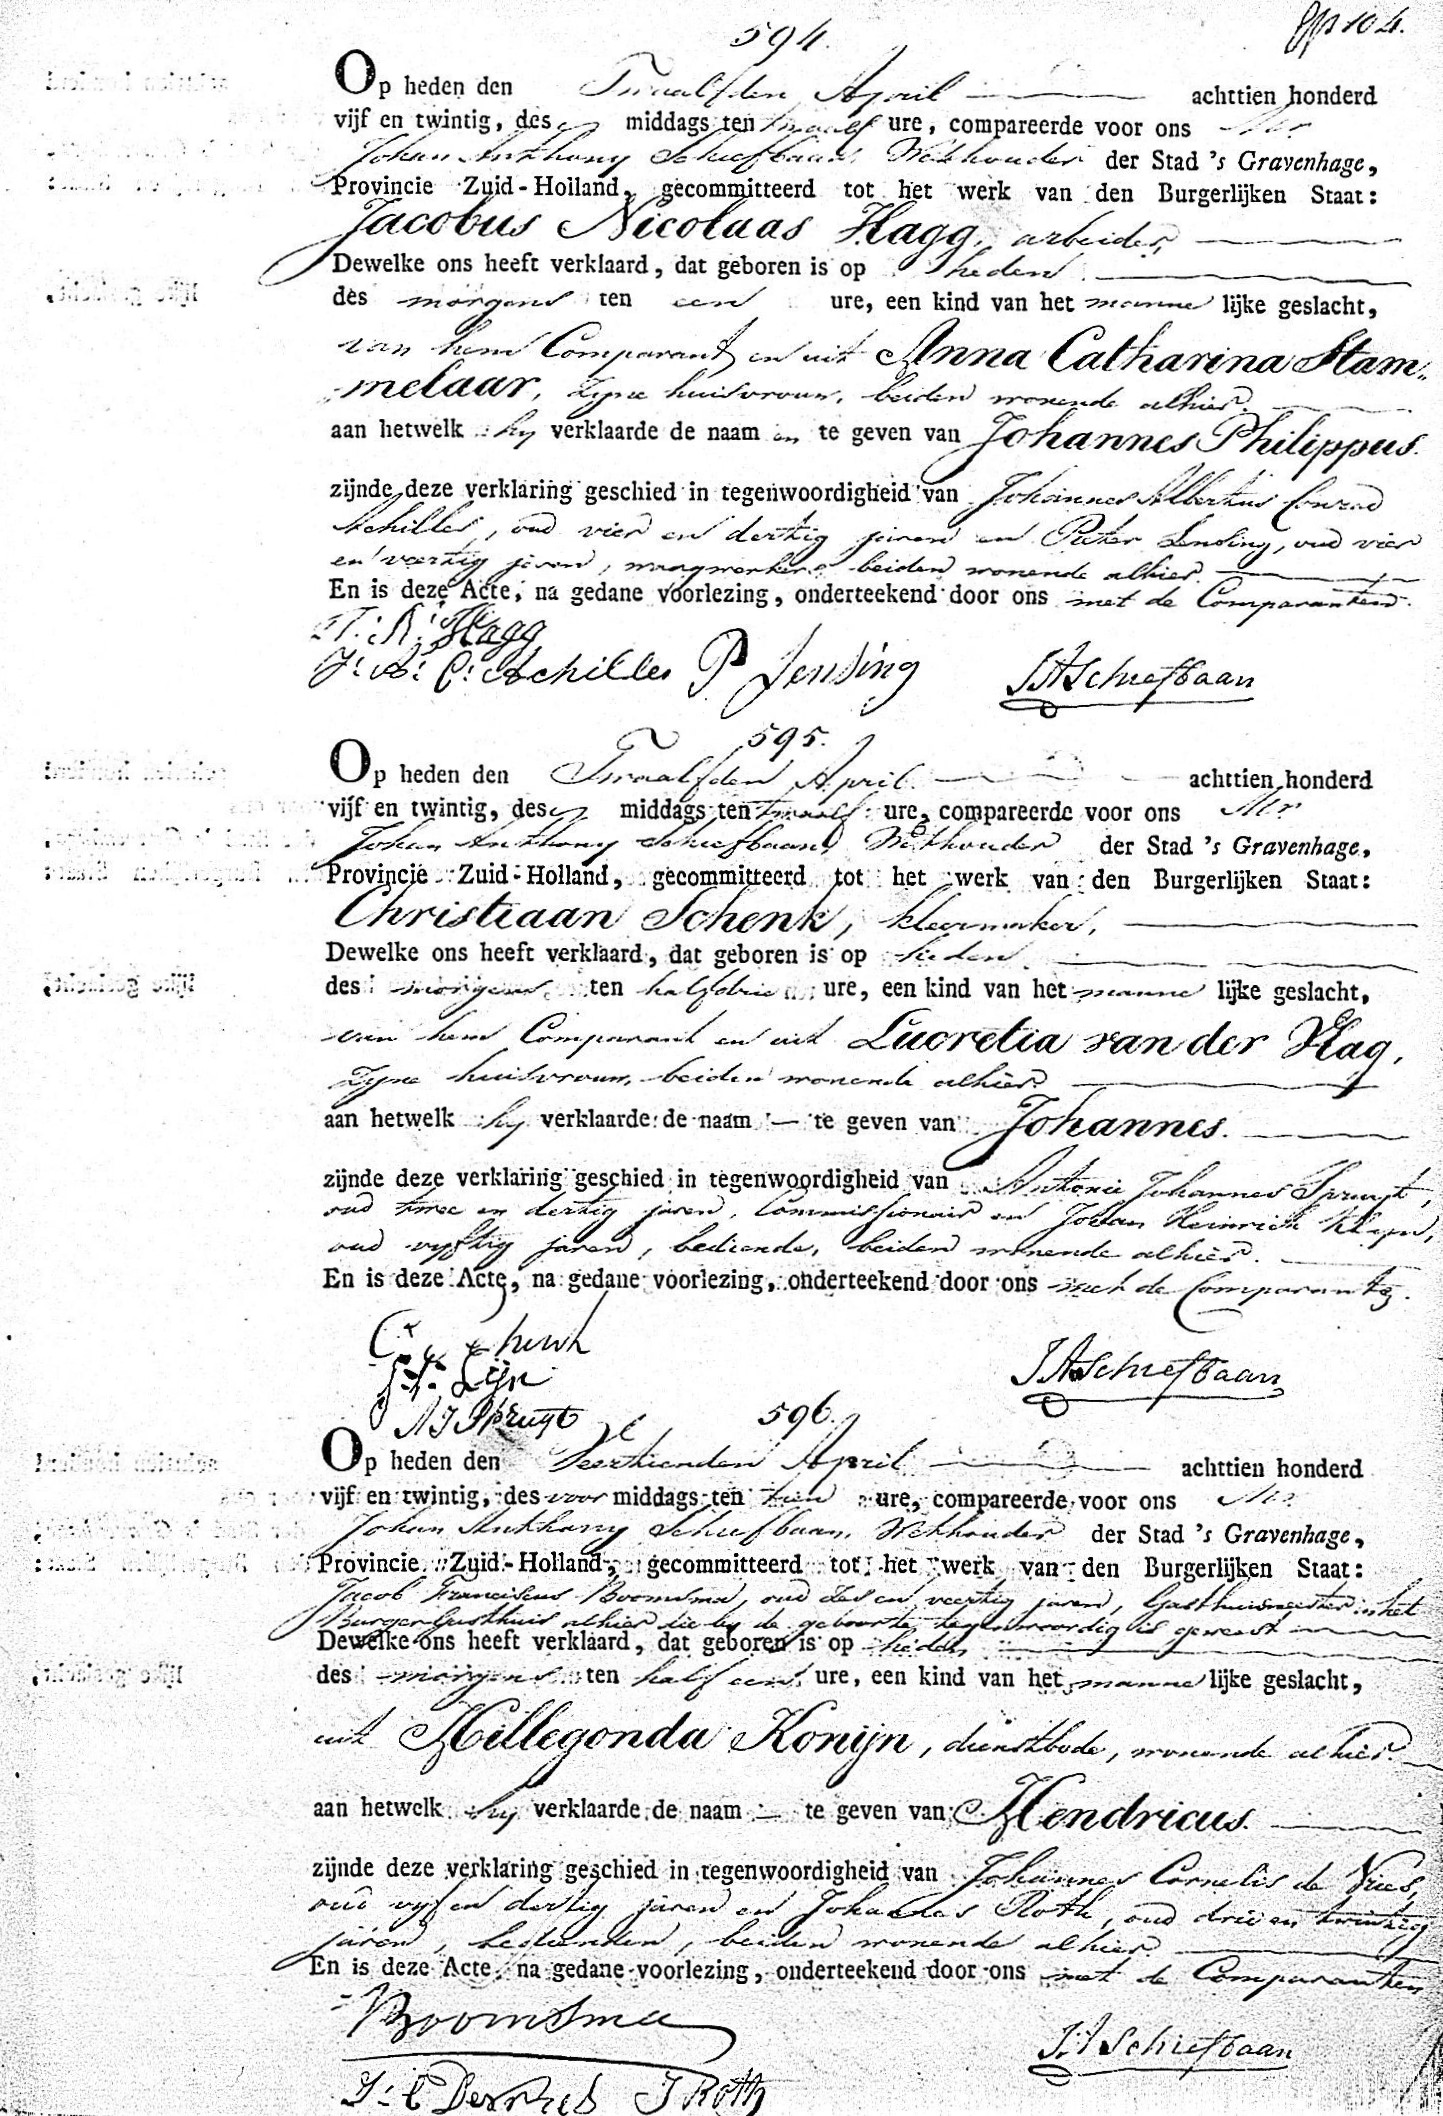 594.
Op heden den Twaalfden April achttien honderd
vijf en twintig, des middags ten twaalf ure, compareerde voor ons Mr
Johan Anthony Schiefbaan, Wethouder der Stad 's Gravenhage,
Provincie Zuid-Holland, gecommitteerd tot het werk van den Burgerlijken Staat:
Jacobus Nicolaas Hagg, arbeider,
Dewelke ons heeft verklaard, dat geboren is op heden
des morgens ten een ure, een kind van het manne lijke geslacht,
van hem Comparant en uit Anna Catharina Stam-
melaar, zyne huisvrouw, beiden wonende alhier.
aan hetwelk hy verklaarde de naam en te geven van Johannes Philippus.
zijnde deze verklaring geschied in tegenwoordigheid van Johannes Albertus Conrad
Achilles, oud vier en dertig jaren en Pieter Jensing, oud vier
en veertig jaren, beiden wonende alhier.
En is deze Acte, na gedane voorlezing, onderteekend door ons met de Comparanten.
J: N: Hagg
J: A: C: Achilles P Jensing JASchiefbaan
595.
Op heden den Twaalfden April achttien honderd
vijf en twintig, des middags ten twaalf ure, compareerde voor ons Mr
Johan Anthony Schiefbaan, Wethouder der Stad 's Gravenhage,
Provincie Zuid-Holland, gecommitteerd tot het werk van den Burgerlijken Staat:
Christiaan Schenk, kleermaker,
Dewelke ons heeft verklaard, dat geboren is op heden
des morgens ten halfdrie ure, een kind van het manne lijke geslacht,
van hem Comparant en uit Lucretia van der Hag,
zyne huisvrouw, beiden wonende alhier
aan hetwelk hy verklaarde de naam — te geven van Johannes.
zijnde deze verklaring geschied in tegenwoordigheid van Antonie Johannes Spruyt,
oud twee en dertig jaren, Commissionair en Johan Heinrich Klyn,
oud vyftig jaren, bediende, beiden wonende alhier.
En is deze Acte, na gedane voorlezing, onderteekend door ons met de Comparanten.
JASchiefbaan
AJSpruyt
596.
Op heden den Veertienden April achttien honderd
vijf en twintig, des voor middags ten tien ure, compareerde voor ons Mr
Johan Anthony Schiefbaan, Wethouder der Stad 's Gravenhage,
Provincie Zuid-Holland, gecommitteerd tot het werk van den Burgerlijken Staat:
Jacob Franciscus Boomsma, oud zes en veertig jaren, Gasthuismeester in het
Burger Gasthuis alhier die by de geboorte tegenwoordig is geweest
Dewelke ons heeft verklaard, dat geboren is op heden
des morgens ten half een ure, een kind van het manne lijke geslacht,
uit Hillegonda Konijn, dienstbode, wonende alhier.
aan hetwelk hy verklaarde de naam — te geven van Hendricus.
zijnde deze verklaring geschied in tegenwoordigheid van Johannes Cornelis de Vries,
oud vyf en dertig jaren en Johannes Roth, oud drie en twintig
jaren, bedienden, beiden wonende alhier
En is deze Acte, na gedane voorlezing, onderteekend door ons met de Comparanten
Boomsma
JASchiefbaan
J: C Devries J Roth